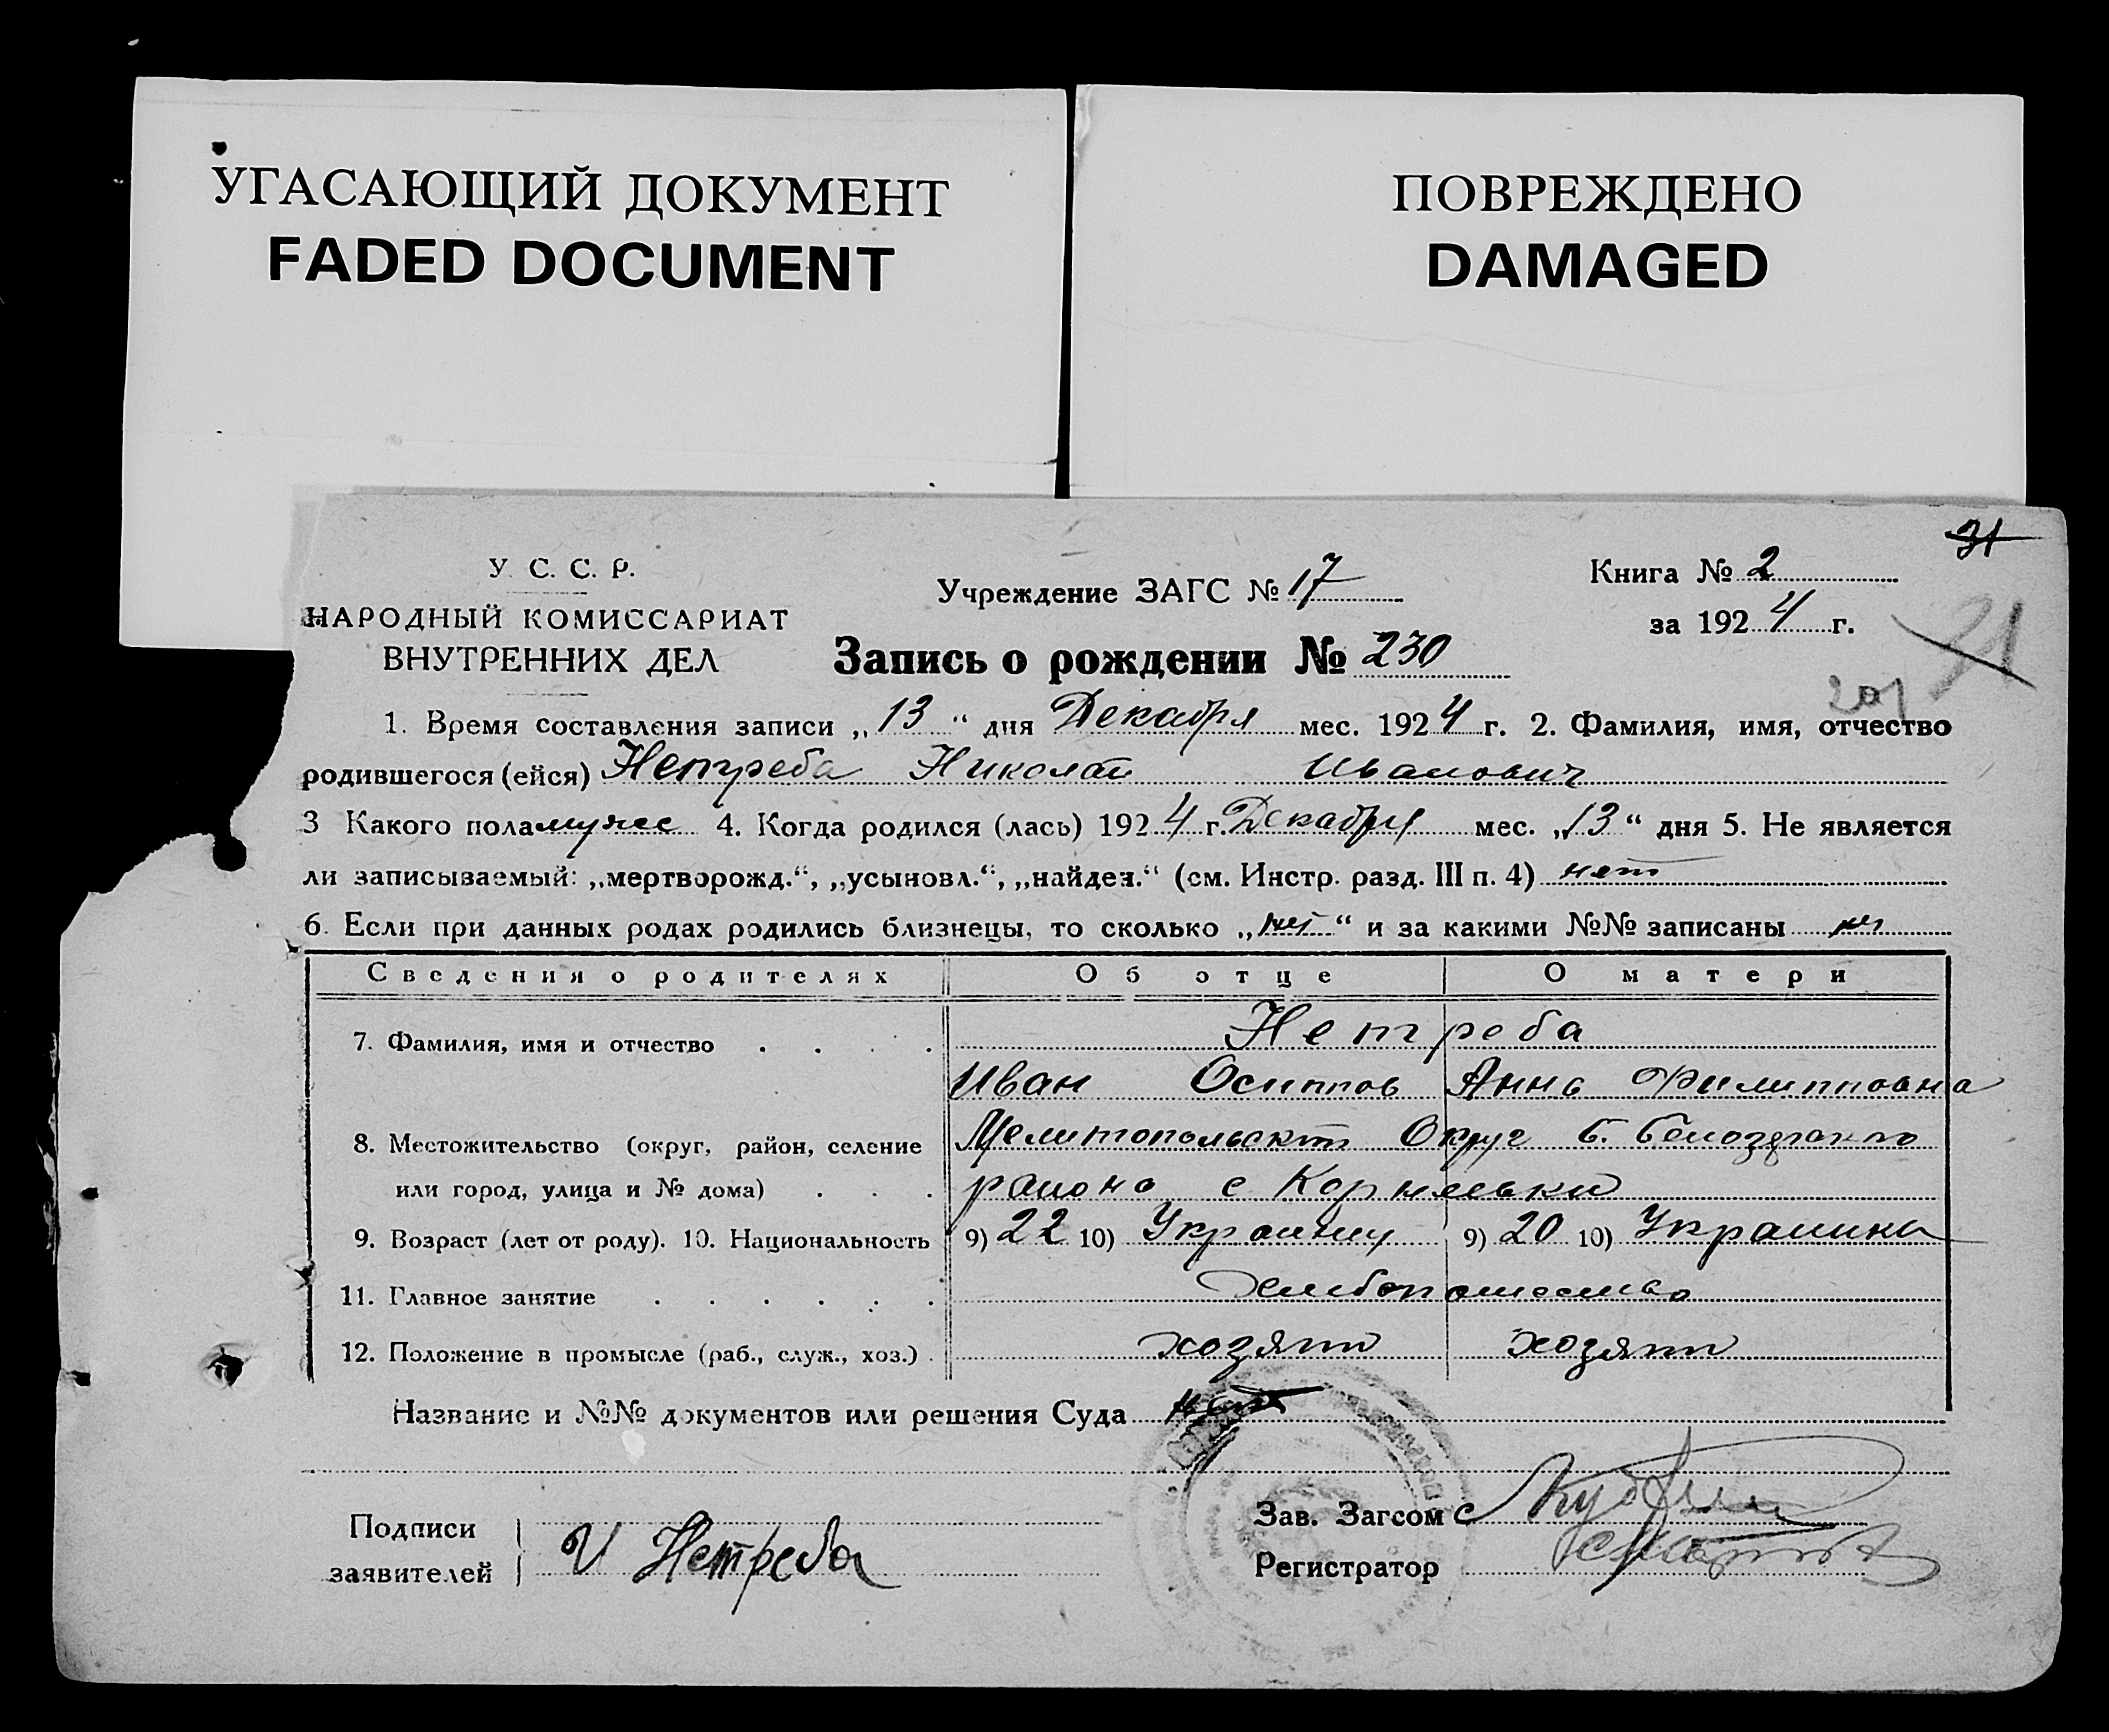 УГАСАЮЩИЙ ДОКУМЕНТ
FADED DOCUMENT
ПОВРЕЖДЕНО
DAMAGED
31
У. С. С. Р.
НАРОДНЫЙ КОМИССАРИАТ
ВНУТРЕННИХ ДЕЛ
Учреждение ЗАГС № 17
Книга № 2
за 1924 г.
31
Запись о рождении № 230
1. Время составления записи „13“ дня Декабря мес. 1924 г. 2. Фамилия, имя, отчество
родившегося (ейся) Нетреба Николай Иванович
3 Какого пола мужс 4. Когда родился (лась) 1924 г. Декабря мес. „13“ дня 5. Не является
ли записываемый: „мертворожд.“, „усыновл.“, „найден.“ (см. Инстр. разд. III п. 4) нет
6. Если при данных родах родились близнецы, то сколько „нет“ и за какими №№ записаны нет
Сведения о родителях Об отце О матери
7. Фамилия, имя и отчество Нетреба
Иван Осипов Анна Филипповна
8. Местожительство (округ, район, селение Мелитопольский Округ Б. Белозерского
или город, улица и № дома) района с
9. Возраст (лет от роду). 10. Национальность 9) 22 10) Украинец 9) 20 10) Украинка
11. Главное занятие Хлебопашество
12. Положение в промысле (раб., служ., хоз.) хозяин хозяин
Название и №№ документов или решения Суда нет
Подписи
заявителей И Нетреба
Зав. Загсом
Регистратор